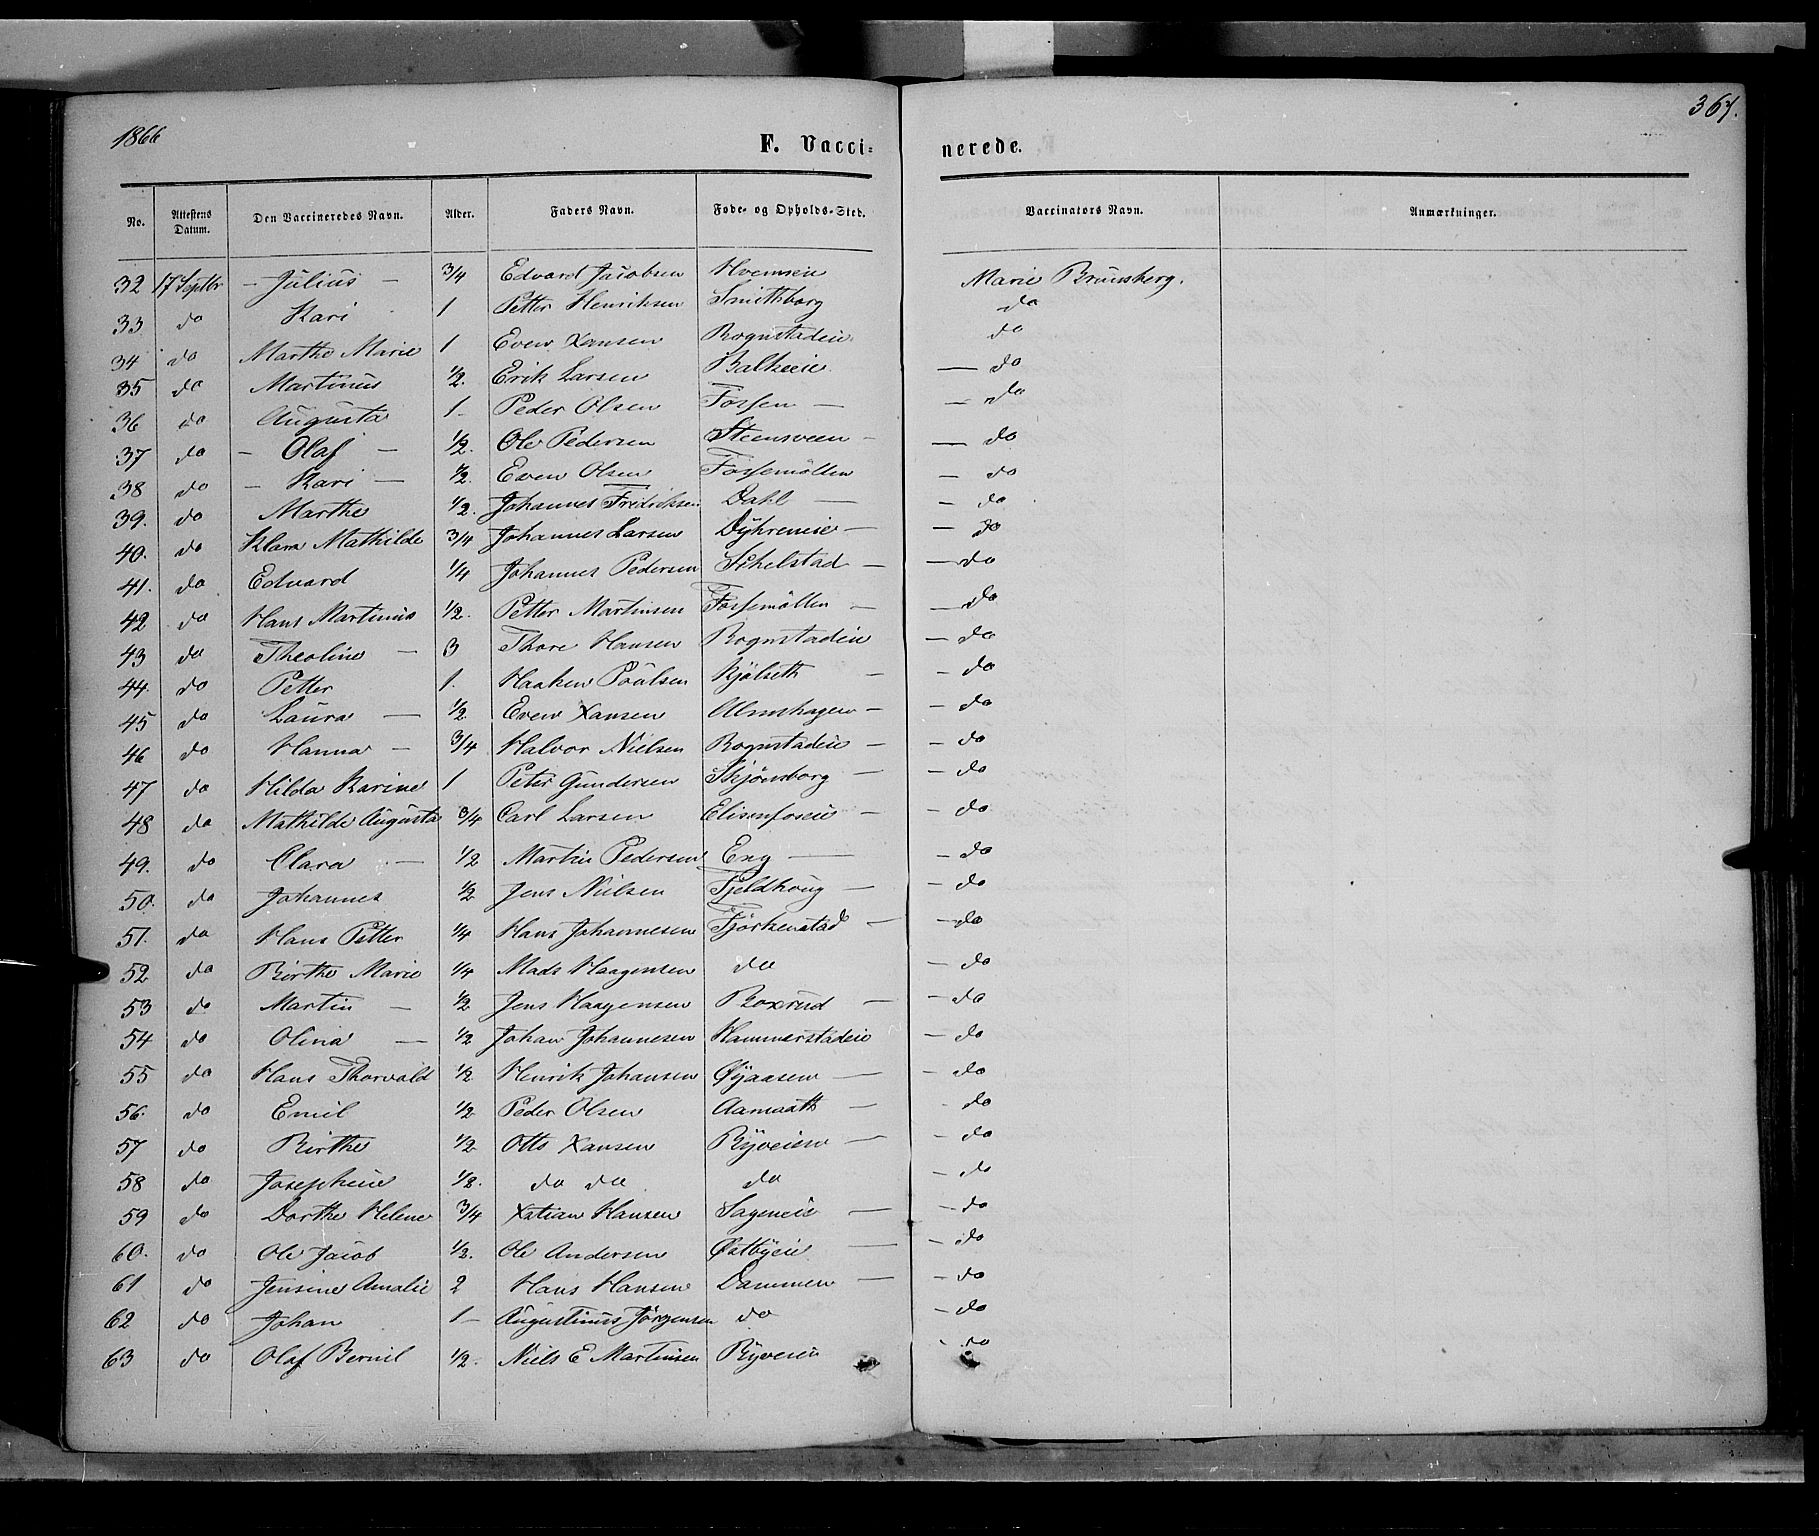 1866
367.
F. Vacci= nerede.
No. Attestens Datum. Den Vaccineredes Navn. Alder. Faders Navn. Føde- og Opholds-Sted. Vaccinatørs Navn. Anmærkninger.
32 17 Septbr - Julius - 3/4 Edvard Jacobsen Hvemeie Marie Bruusberg.
33 do Kari 1 Petter Henriksen Smithsborg do
34 do Marthe Marie 1 Even Hansen Rognstadeie do
35 do Martinus 1/2. Erik Larsen Balkeeie — do
36 do Augusta 1- Peder Olsen Fossen — — do
37 do - Olaf - 1/2. Ole Pedersen Steensveen - — do
38 do - Kari - 1/2. Even Olsen Fossemöllen — do
39. do Marthe 1/2. Johannes Fredriksen Dahl — — do
40. do Klara Mathilde 3/4 Johannes Larsen Dyhreneie — — do
41. do Edvard 1/4 Johannes Pedersen Sikelstad — — do
42 do Hans Martinus 1/2. Petter Martinsen Fossemöllen — — do
43 do Theoline — 3 Thore Hansen Rognstadeie — do
44. do Petter 1. Haaken Poulsen Kjölseth — — do
45 do Laura — 1/2 Even Hansen Almshagen — — do
46 do Hanna — 3/4 Halvor Nielsen Rognstadeie — — do
47 do Hilda Karine 1 Peter Gundersen Skjönsborg — — do
48 do Mathilde Augusta 3/4 Carl Larsen Elisenfoseie — — do
49. do Clara — 1/2 Martin Pedersen Eng — — do
50. do Johannes 1/2 Jens Nielsen Fjeldhoug — — do
51. do Hans Petter 1/4 Hans Johannesen Fjörkenstad — — do
52 do Birthe Marie 1/4 Mads Haagensen do — do
53 do Martin — 1/2 Jens Haagensen Boxrud — — do
54 do Olina — 1/2 Johan Johannesen Hammerstadeie — do
55 do Hans Thorvald 1/2 Henrik Johansen Øyaasen — — do
56. do Emil 1/2 Peder Olsen Aamodt — — do
57 do Birthe 1/2 Otto Hansen Ryveien — — do
58 do Josephine 1/2. do do do — do
59 do Dorthe Helene 3/4 Kristian Hansen Sageneie — — do
60. do Ole Jacob 1/2. Ole Andersen Østbyeie — — do
61 do Jensine Amalie 2 Hans Hansen Dammen — — do
62 do Johan 1- Augustinus Jörgensen do — do
63 do Olaf Bernil 1/2. Niels E Martinsen Ryveien - do